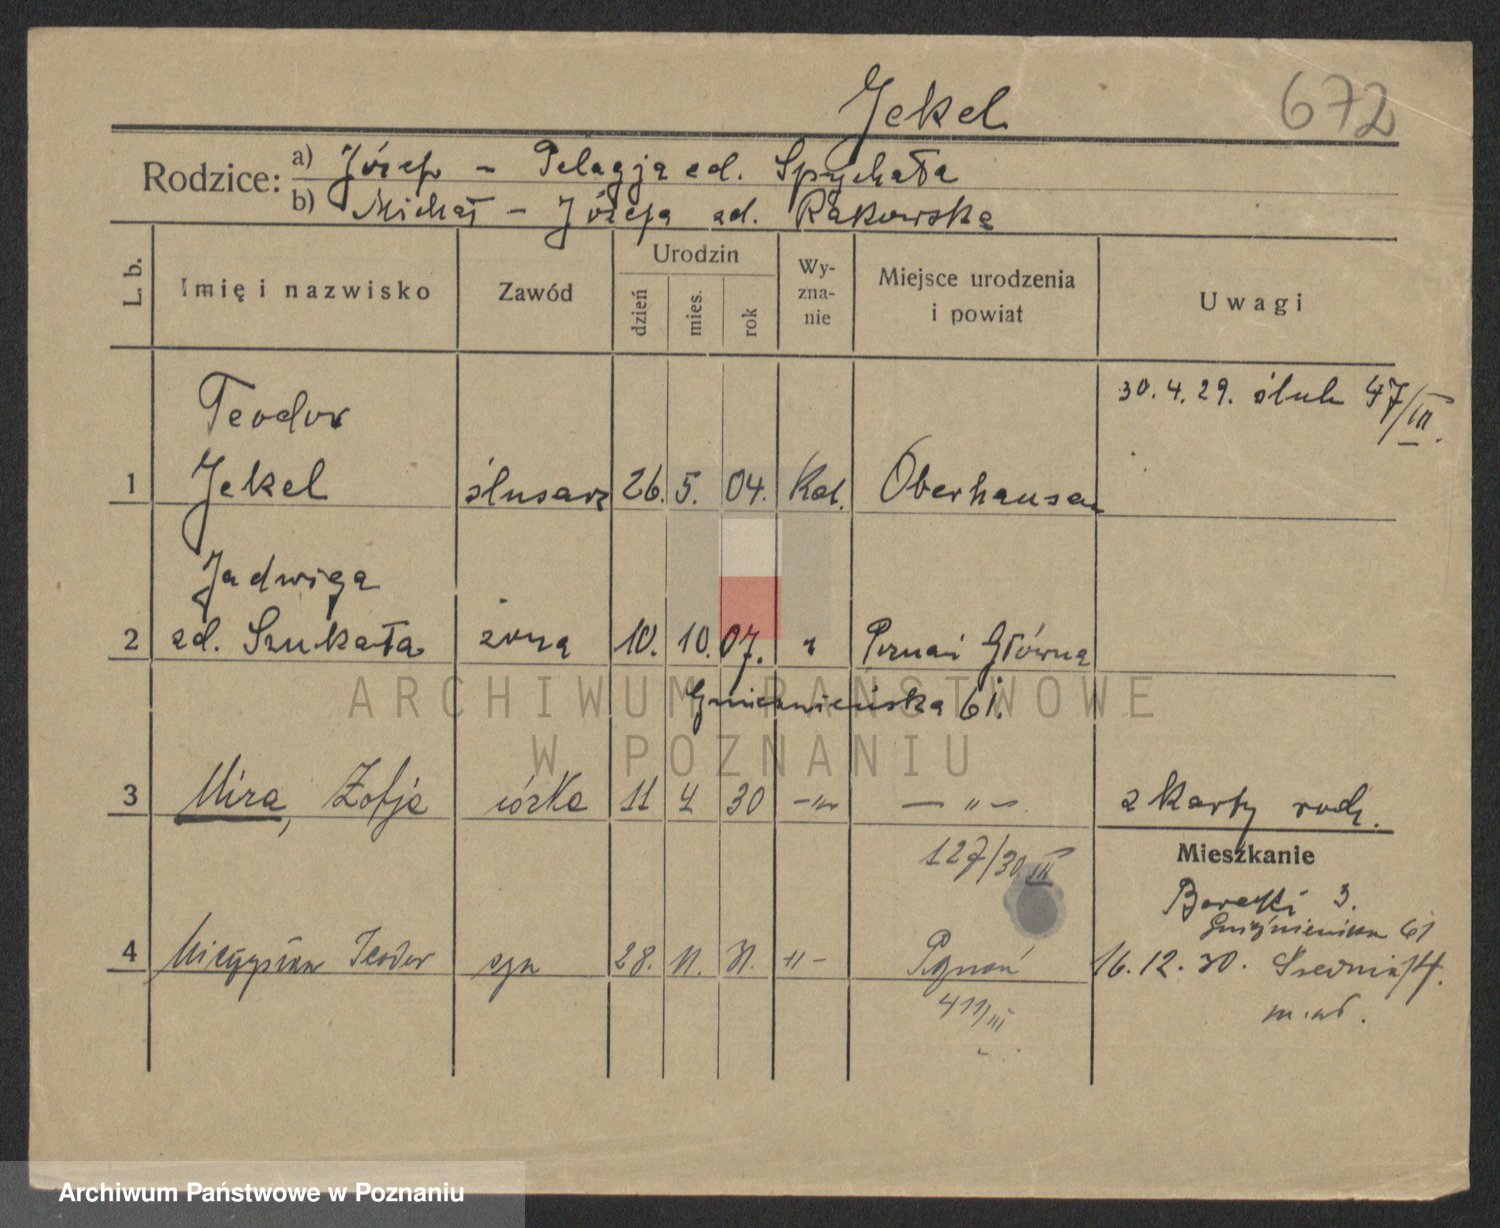 Jekel 672
Rodzice: a) Józef - Pelagja zd. Spychała
b) Michał - Józefa zd. Rakowska
L. b. Imię i nazwisko Zawód Urodzin dzień mies. rok Wy-zna-nie Miejsce urodzenia i powiat Uwagi
Teodor 30.4.29. ślub 47/III.
1 Jekel ślusarz 26. 5. 04. Kat. Oberhausen
Jadwiga
2 zd. Szukała żona 10. 10. 07. " Poznań Główna
61.
3 Mira, Zofja córka 11 4 30 -"- - " - z karty rodz.
127/30 III Mieszkanie
3.
61
4 Mieczysław Teodor syn 28. 11. 31. " - Poznań 16.12.30. Średnia
411/III
ARCHIWUM PAŃSTWOWE
W POZNANIU
Archiwum Państwowe w Poznaniu